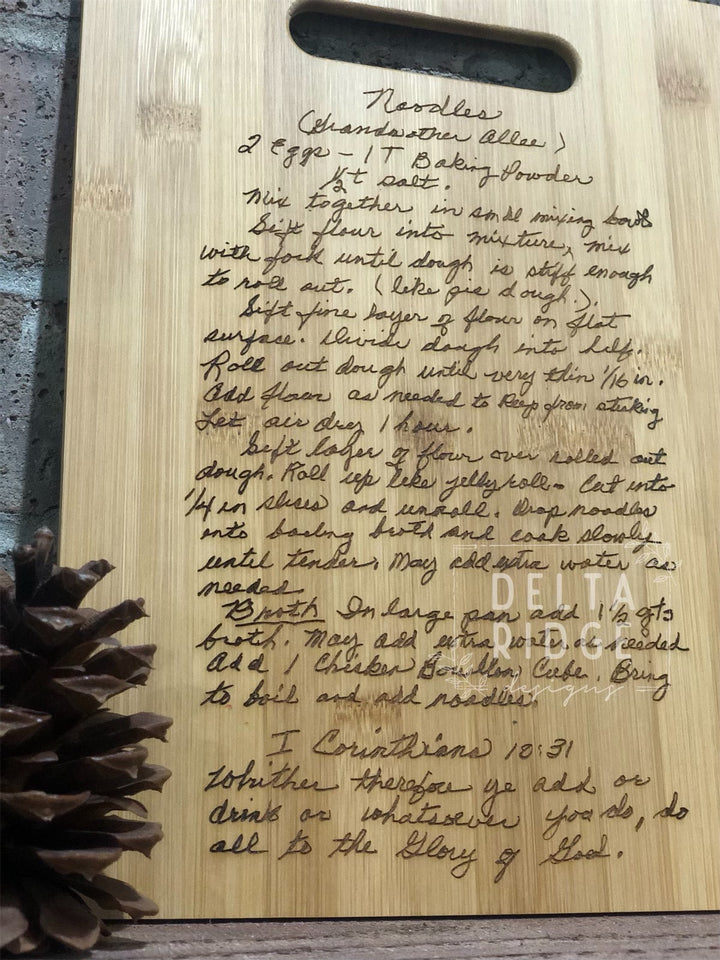 Noodles
(Grandmother Allee)
2 Eggs - 1 T Baking Powder
½ t salt.
Mix together in small mixing bowl
Sift flour into mixture, mix
with fork until dough is stiff enough
to roll out. (like pie dough.).
Sift fine layer of flour on flat
surface. Divide dough into half.
Roll out dough until very thin 1/16 in.
Add flour as needed to keep from sticking
Let air dry 1 hour.
Sift layer of flour over rolled out
dough. Roll up like jelly roll - Cut into
1/4 in slices and unroll. Drop noodles
into boiling broth and cook slowly
until tender. May add extra water as
needed
Broth In large pan add 1½ qts
broth. May add extra water as needed
Add 1 Chicken Bouillon Cube. Bring
to boil and add noodles.
I Corinthians 10:31
Whither therefore ye add or
drink or whatsoever you do, do
all to the Glory of God.
DELTA
RIDGE
designs